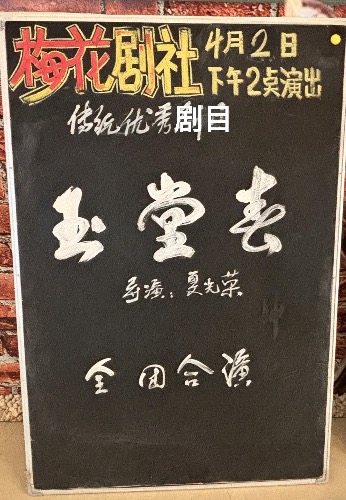 梅花剧社 4月2日
下午2点演出
传统优秀剧目
玉堂春
导演：夏光荣
全团合演